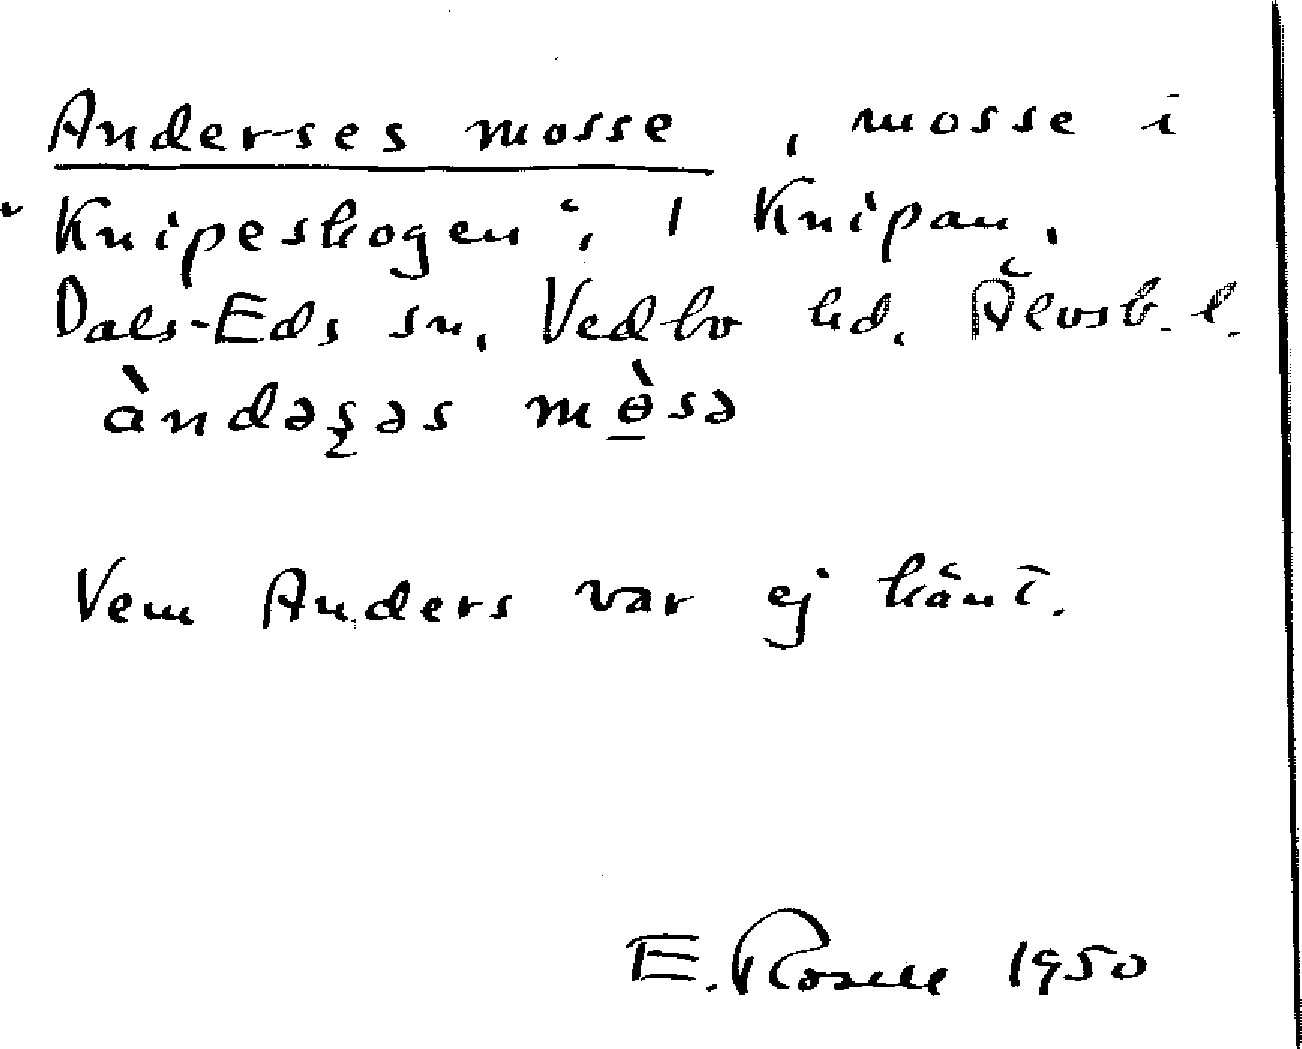 Anderses mosse, mosse i
"Knipeskogen", 1 Knipan,
Dals-Eds sn, Vedbo hd. Älvsb. l.
àndəʂəs mɵ̠̀sə
Vem Anders var ej känt.
E. Rosell 1950